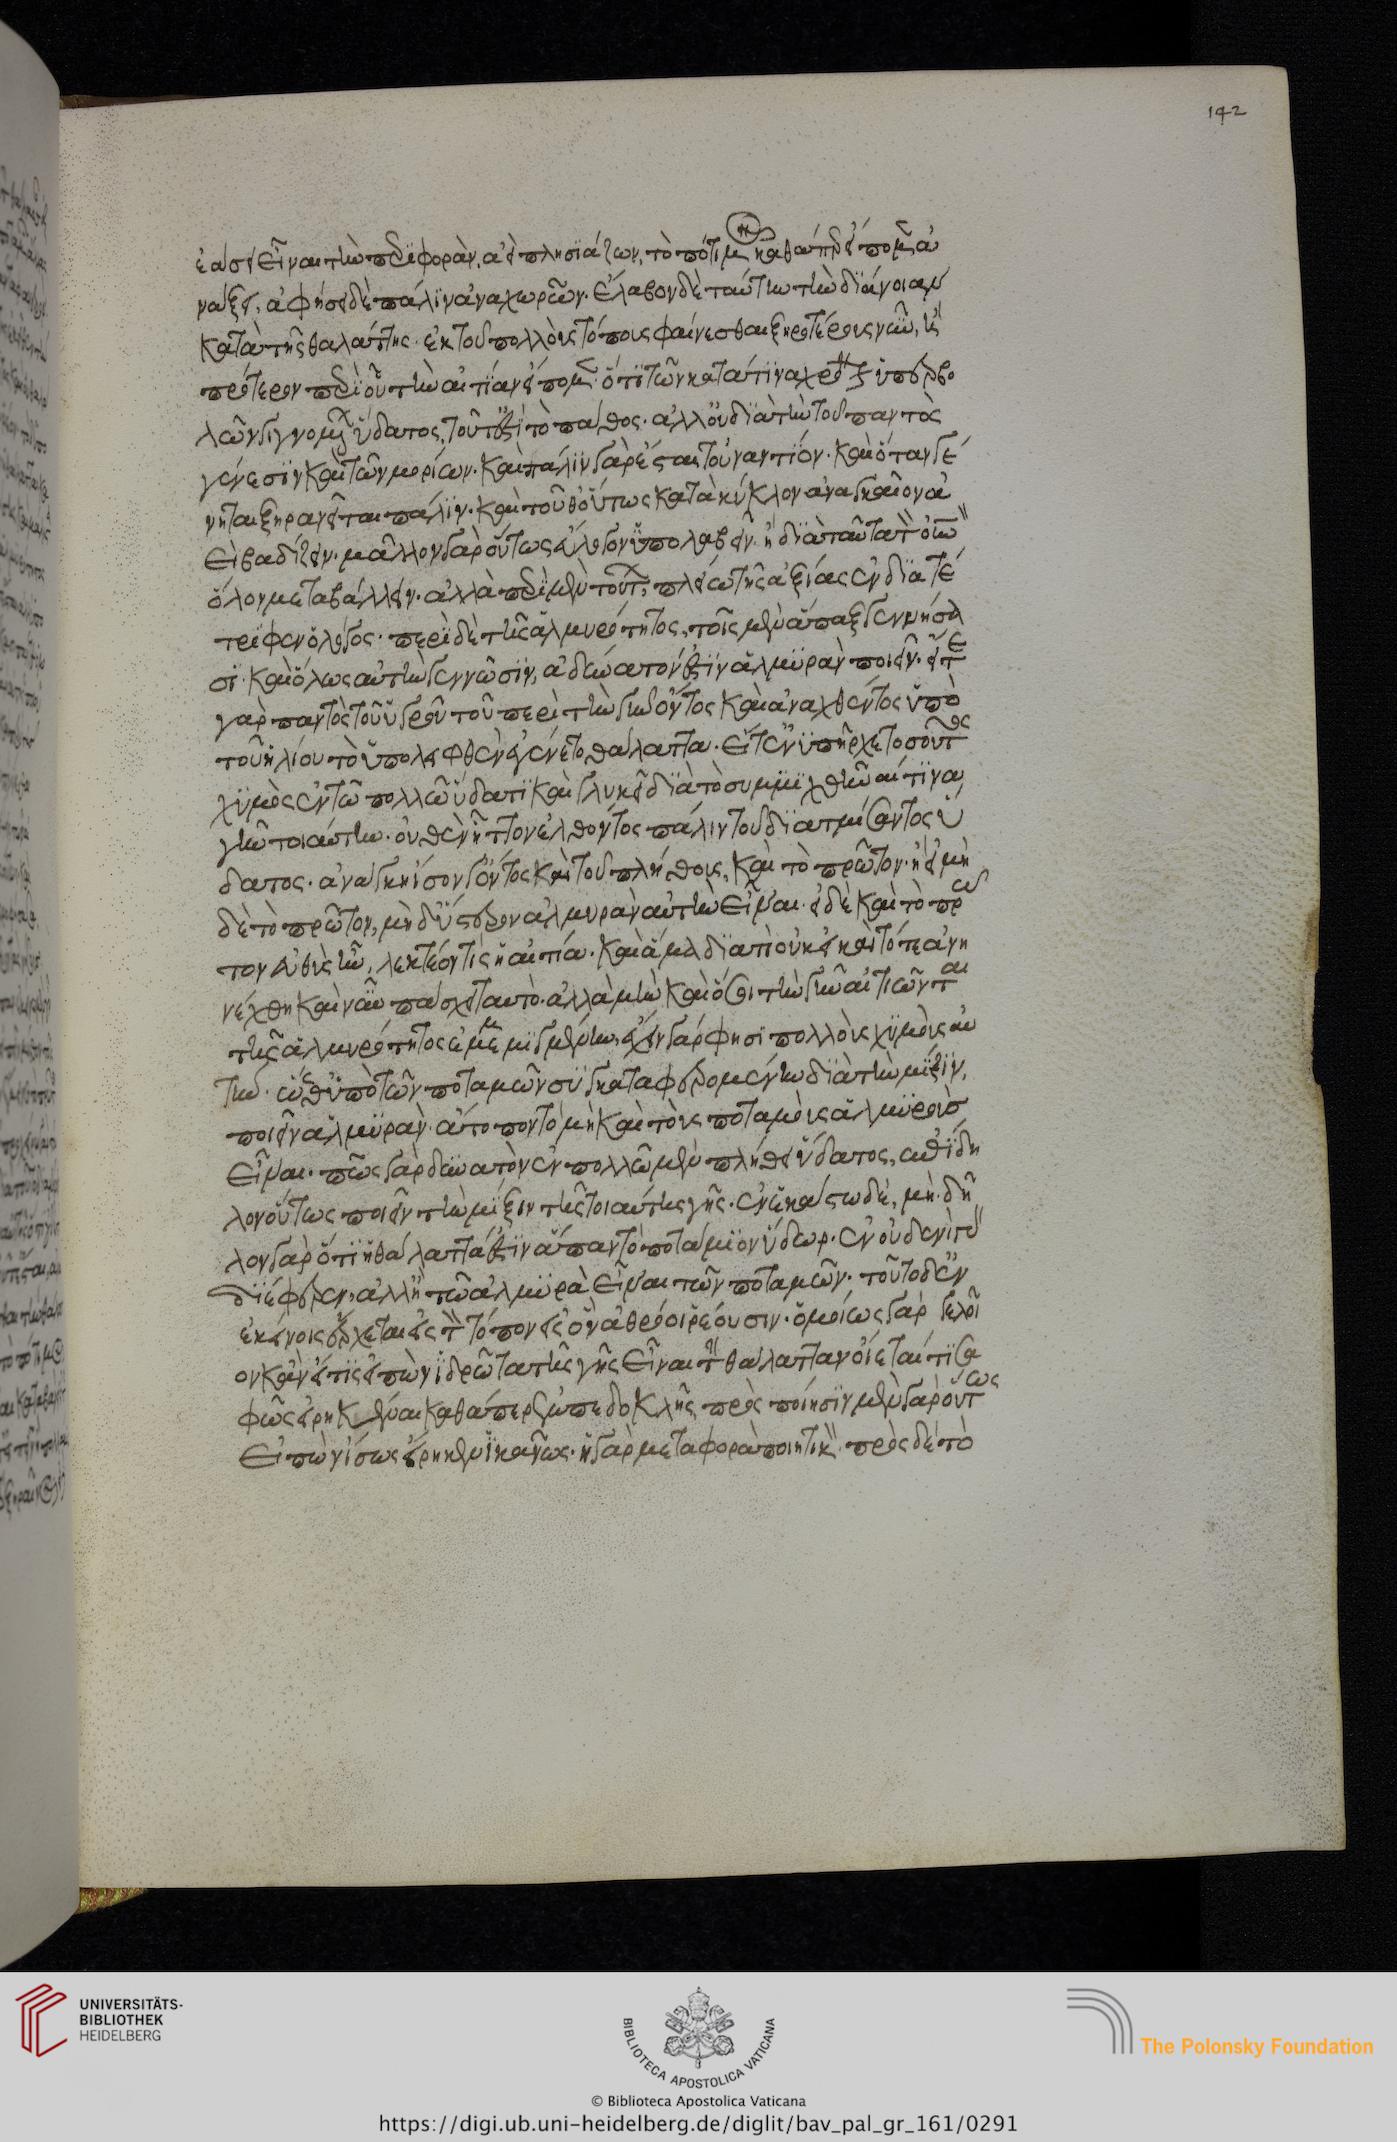 ἐάσει εἶναι τὴν περιφορὰν, ἀεὶ πλησιάζων, τὸ πότιμον καθάπερ εἴπομεν ἀ
νάξει, ἀφήσει δὲ πάλιν ἀναχωρῶν. ἔλαβον δὲ ταύτην τὴν διάνοιαν
κατὰ τῆς θαλάττης ἐκ τοῦ πολλοὺς τόπους φαίνεσθαι ξηροτέρους νῦν, ἢ
πρότερον περὶ οὗ τὴν αἰτίαν εἴπομεν ὅτι τῶν κατά τινα χρόνον ὑπερβο
λῶν γιγνομένων ὕδατος, τοῦτ' ἐστὶ τὸ πάθος. ἀλλ' οὐ διὰ τὴν τοῦ παντὸς
γένεσιν καὶ τῶν μορίων. καὶ πάλιν γὰρ ἔσται τοὐναντίον. καὶ ὅταν γέ
νηται ξηρανεῖται πάλιν. καὶ τοῦθ' οὕτως κατὰ κύκλον ἀναγκαῖον ἀ
εὶ βαδίζειν. μᾶλλον γὰρ οὕτως εὔλογον ὑπολαβεῖν. ἢ διὰ ταῦτα τὸν οὐνὸν
ὅλον μεταβάλλειν. ἀλλὰ περὶ μὲν τούτων, πλείω τῆς ἀξίας ἐνδιατέ
τριφεν ὁ λόγος. περὶ δὲ τῆς ἁλμυρότητος, τοῖς μὲν ἅπαξ γεννήσα
σι καὶ ὅλως αὐτὴν γεννῶσιν, ἀδύνατόν ἐστιν ἁλμυρὰν ποιεῖν. εἴτε
γὰρ παντὸς τοῦ ὑγροῦ τοῦ περὶ τὴν γῆν ὄντος καὶ ἀναχθέντος ὑπὸ
τοῦ ἡλίου τὸ ὑπολειφθὲν ἐγένετο θάλαττα. εἴτ' ἐνυπῆρχε τοσοῦτος
χυμὸς ἐν τῷ πολλῷ ὕδατι καὶ γλυκεῖ διὰ τὸ συμμιχθῆναί τινα
γῆν τοιαύτην. οὐθὲν ἧττον ἐλθόντος πάλιν τοῦ διατμίσαντος ὕ
δατος. ἀνάγκη ἴσου γ' ὄντος καὶ τοῦ πλήθους, καὶ τὸ πρῶτον. ἢ εἰ μὴ
δὲ τὸ πρῶτον, μηδ' ὕστερον ἁλμυρὰν αὐτὴν εἶναι. εἰ δὲ καὶ τὸ πρῶ
τον εὐθὺς ἦν, λεκτέον τίς ἡ αἰτία. καὶ ἅμα διατί οὐκ εἰ καὶ τότε ἀνη
νέχθη καὶ νῦν πάσχει ταυτό. ἀλλὰ μὴν καὶ ὅσοι τὴν γῆν αἰτιῶνται
τῆς ἁλμυρότητος ἐμμεμιγμένην, ἔχειν γάρ φησι πολλοὺς χυμοὺς αὐ
τὴν. ὥσθ' ὑπὸ τῶν ποταμῶν συγκαταφερομένην διὰ τὴν μίξιν,
ποιεῖν ἁλμυρὰν. ἄτοπον τὸ μὴ καὶ τοὺς ποταμοὺς ἁλμυροὺς
εἶναι. πῶς γὰρ δυνατὸν ἐν πολλῷ μὲν πλήθει ὕδατος, ἐπίδη
λον οὕτως ποιεῖν τὴν μίξιν τῆς τοιαύτης γῆς. ἐν ἑκάστῳ δὲ, μή. δῆ
λον γὰρ ὅτι ἡ θάλαττά ἐστιν ἅπαν τὸ ποτάμιον ὕδωρ. ἐν οὐδενὶ γὰρ
διέφερεν. ἀλλ' ἢ τῷ ἁλμυρὰ εἶναι τῶν ποταμῶν. τοῦτο δ' ἐν
ἐκείνοις ἔρχεται εἰς τὸν τόπον εἰς ὃν ἀθρόοι ῥέουσιν. ὁμοίως γὰρ γελοῖ
ον κἂν εἴ τις εἰπὼν ἱδρῶτα τῆς γῆς εἶναι τὴν θάλατταν οἴεταί τι σα
φῶς εἰρηκέναι καθάπερ Ἐμπεδοκλῆς πρὸς ποίησιν μὲν γὰρ οὕτως
εἰπὼν ἴσως εἴρηκεν ἱκανῶς. ἡ γὰρ μεταφορὰ ποιητικὴ πρὸς δὲ τὸ
142
UNIVERSITÄTS-
BIBLIOTHEK
HEIDELBERG
BIBLIOTECA APOSTOLICA VATICANA
The Polonsky Foundation
© Biblioteca Apostolica Vaticana
https://digi.ub.uni-heidelberg.de/diglit/bav_pal_gr_161/0291